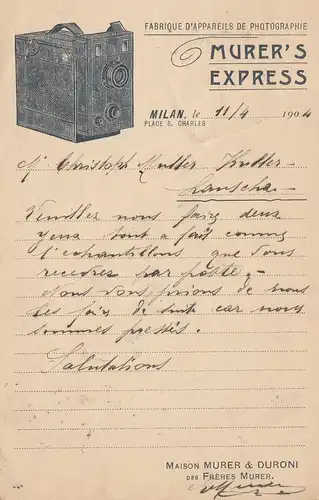 FABRIQUE D'APPAREILS DE PHOTOGRAPHIE
MURER'S
EXPRESS
MILAN, le 11/4 1904
PLACE S. CHARLES
Mr Christoph Muller
Lauscha
Veuillez nous faire deux
yeux tout a fait comme
l'echantillons que vous
recevrez par poste. -
Nous vous prions de nous
les faire de suite car nous
sommes pressés.
Salutations
MAISON MURER & DURONI
DES FRÈRES MURER.